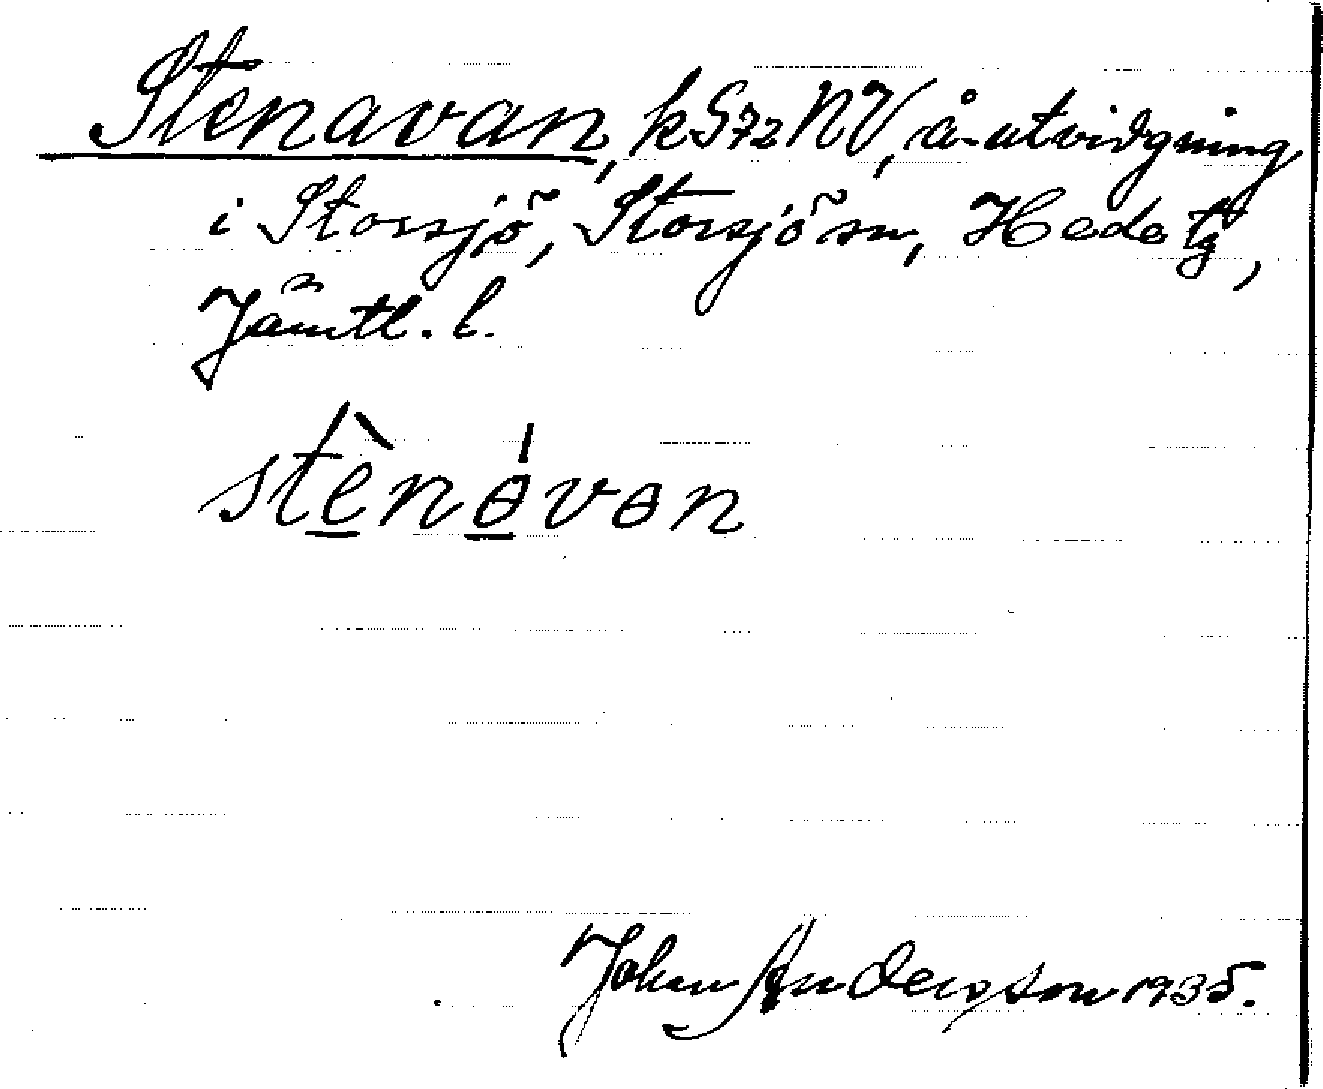 Stenavan, k S72 NV, å-utvidgning
i Storsjö, Storsjö sn, Hede tg,
Jämtl. l.
stènávan
John Andersson 1935.